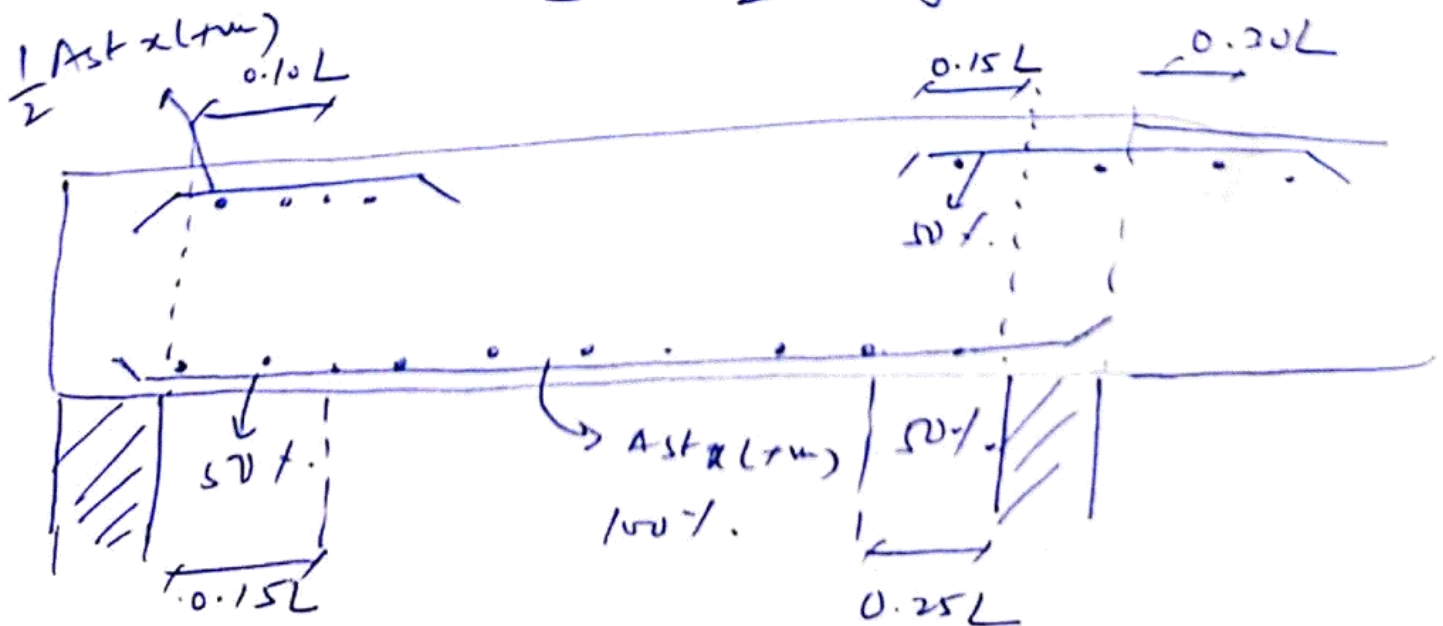 1/2 Ast x(+ve)
0.10L
0.15L
0.30L
50%.
50%.
Ast x(+ve)
100%.
50%.
0.15L
0.25L